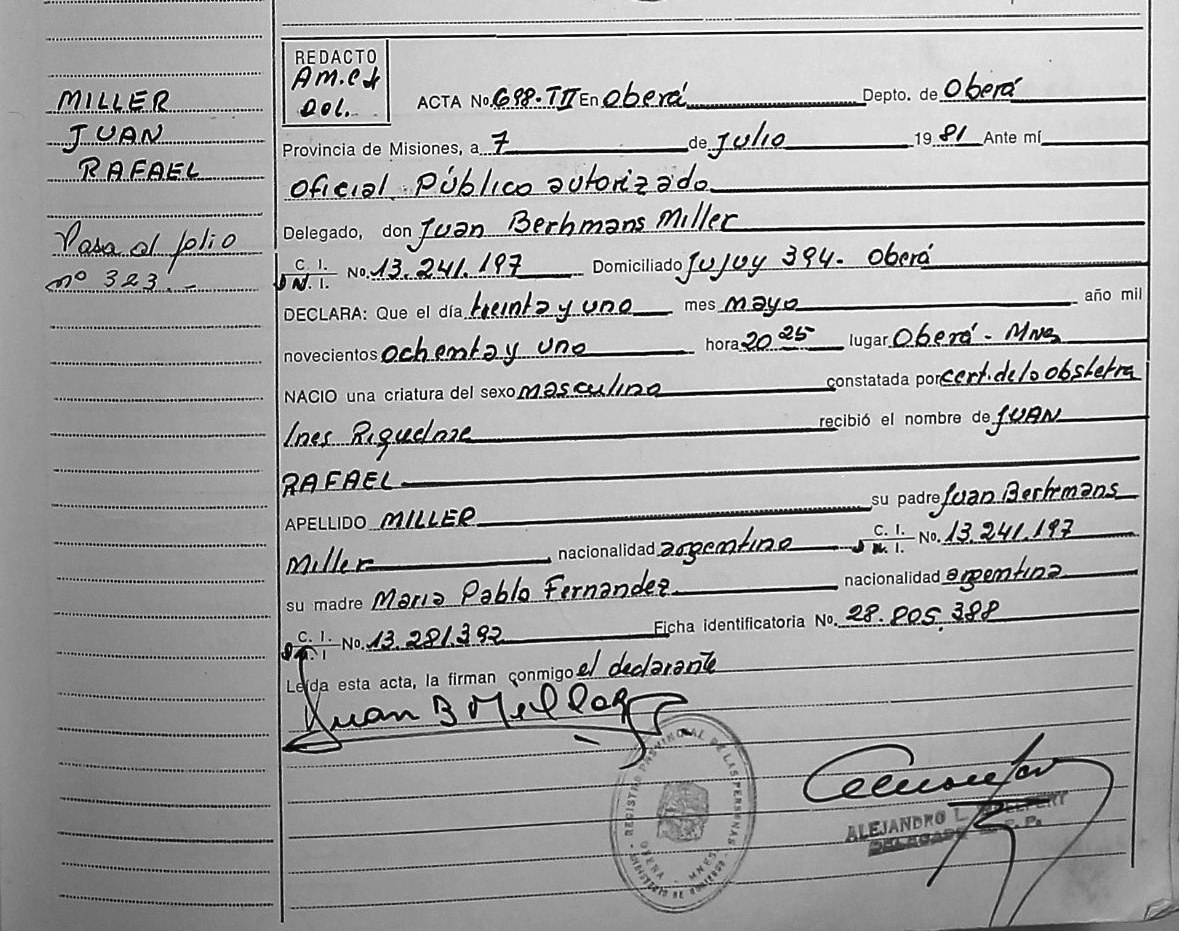 MILLER
JUAN
RAFAEL
Pasa al folio
nº 323.-
REDACTO
ACTA No. 698-TII En Oberá Depto. de Oberá
Provincia de Misiones, a 7 de Julio 19 81 Ante mí
Oficial Público autorizado
Delegado, don Juan Berhmans Miller
C. I. No. 13.241.197 Domiciliado Jujuy 394- Oberá
N. I.
DECLARA: Que el día treinta y uno mes mayo año mil
novecientos ochenta y uno hora 20 25 lugar Oberá - Mnes
NACIO una criatura del sexo masculino constatada por cert. de la obstetra
Ines Riquelme recibió el nombre de JUAN
RAFAEL
APELLIDO MILLER su padre Juan Berhmans
Miller, nacionalidad argentina C. I. No. 13.241.197
N. I.
su madre Maria Pabla Fernandez nacionalidad argentina
C. I. No. 13.281.392 Ficha identificatoria No. 28.805.388
Leída esta acta, la firman conmigo el declarante
Juan B Miller
REGISTRO PROVINCIAL DE LAS PERSONAS
OBERA - MNES
MINISTERIO DE GOBIERNO
ALEJANDRO L.
DELEGADO R. P.